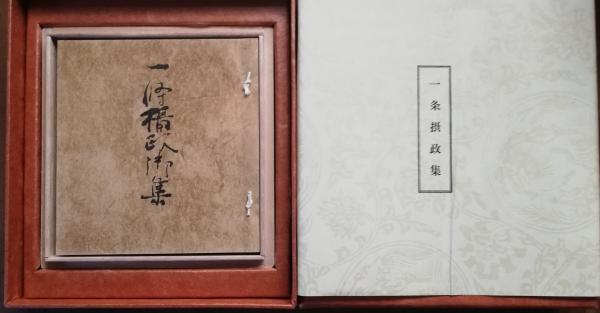 一條摂政御集
一条摂政集